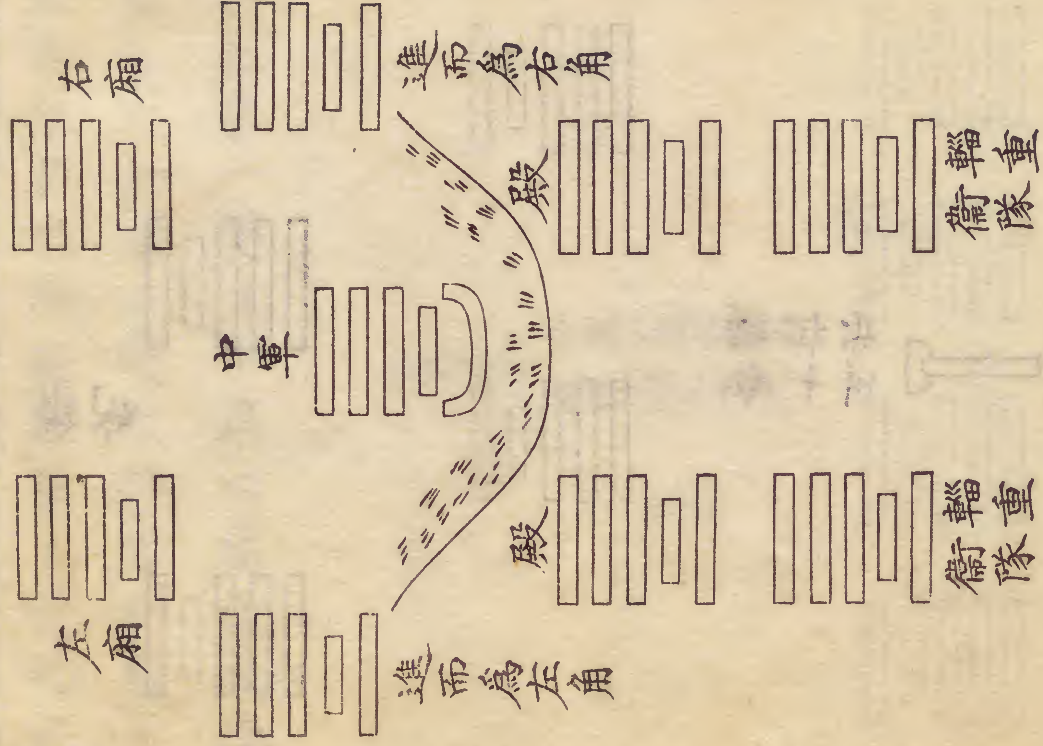 右廂
進而為右角
殿
輜重
衛隊
中軍
左廂
進而為左角
殿
輜重
衛隊